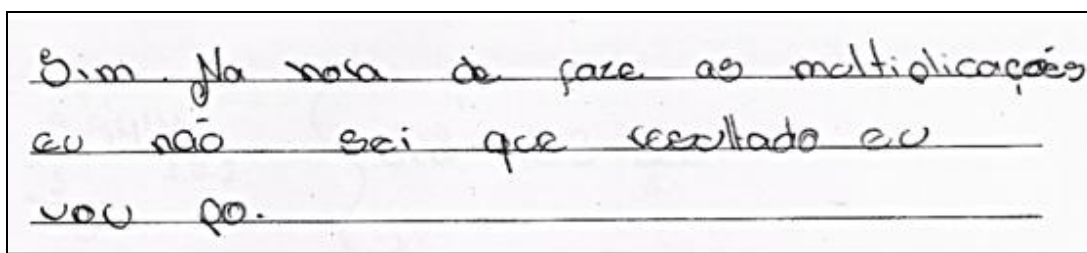 Sim. Na hora de faze as moltiplicações
eu não sei que resultado eu
vou po.